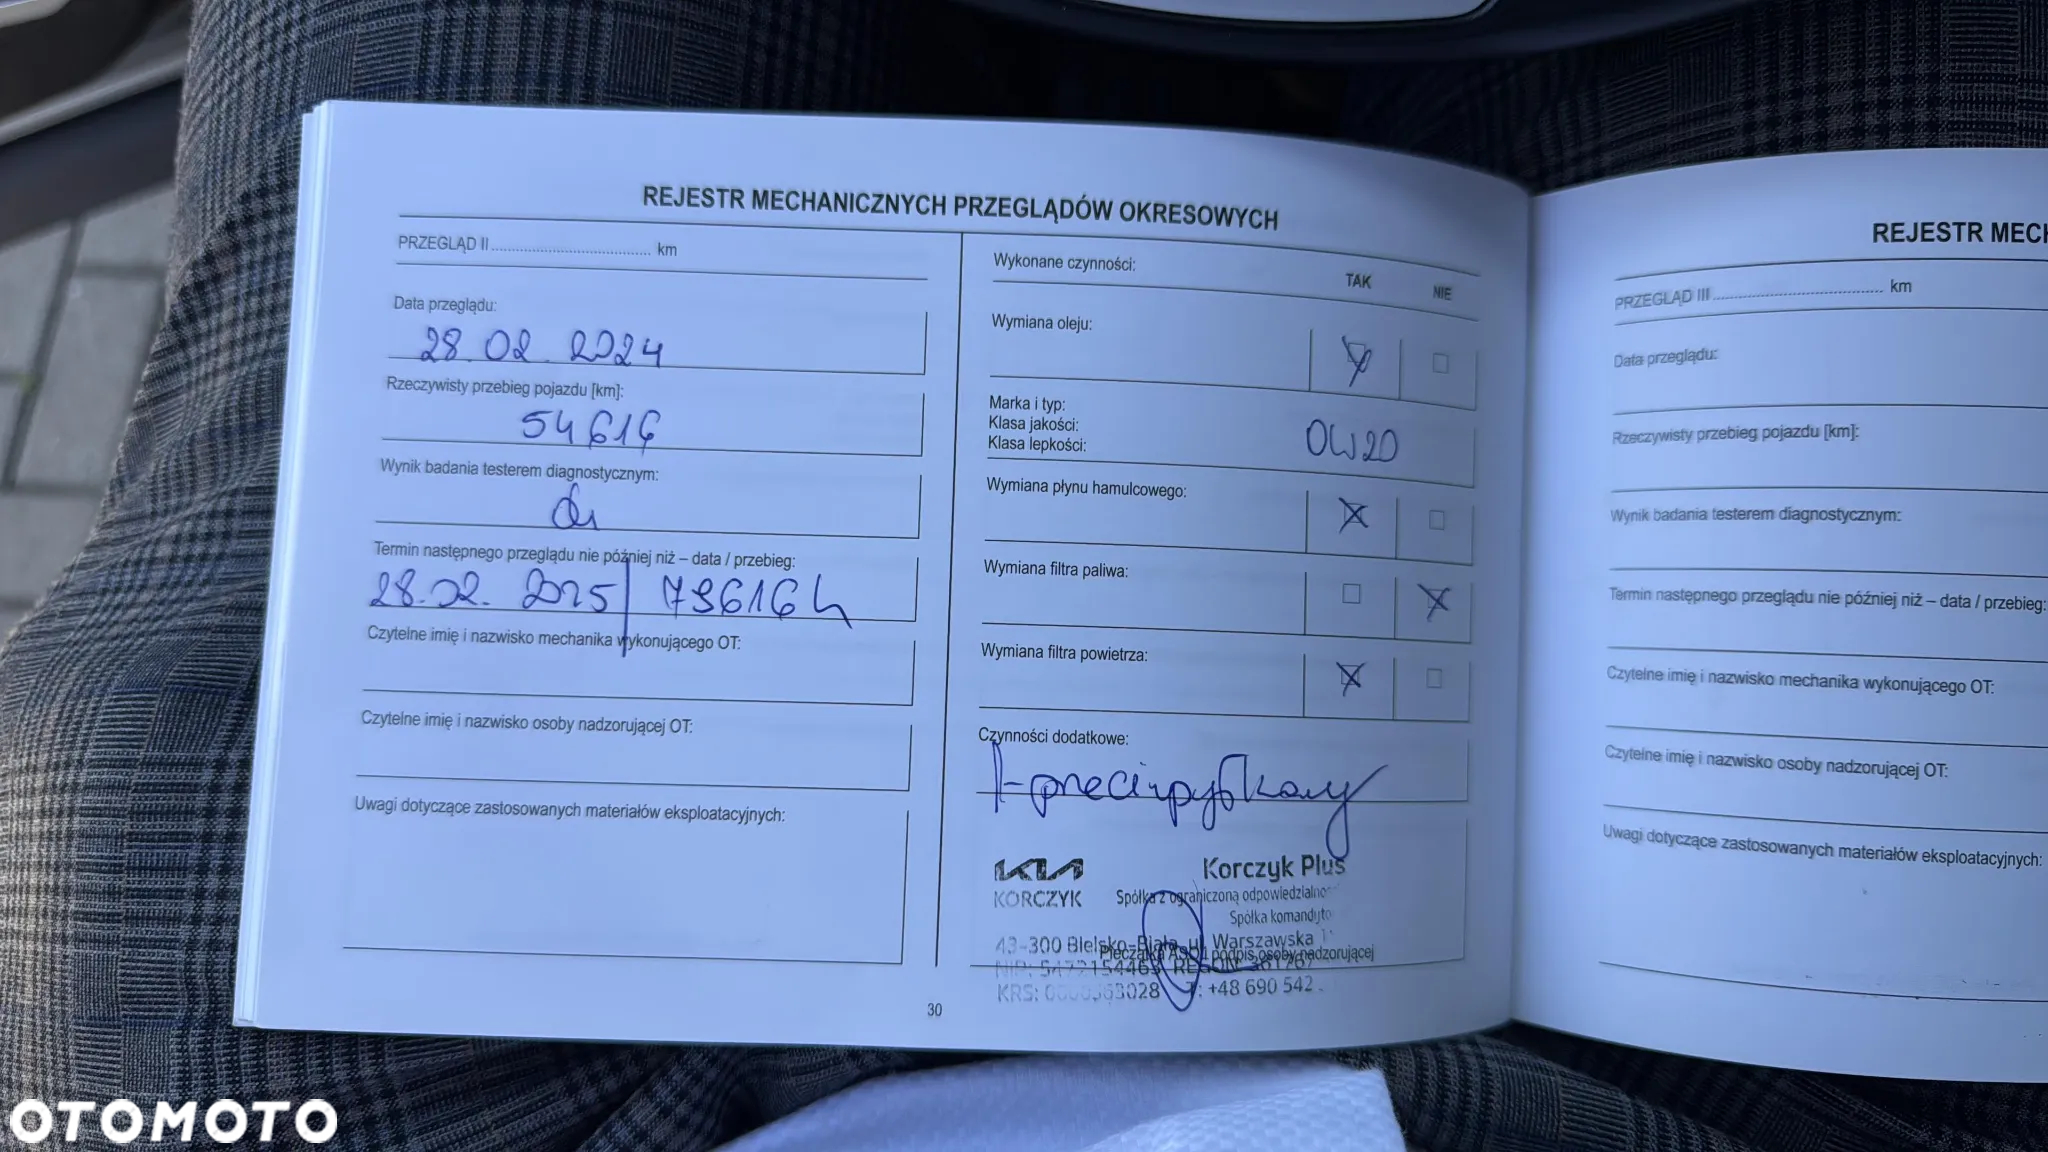 REJESTR MECHANICZNYCH PRZEGLĄDÓW OKRESOWYCH
PRZEGLĄD II ........................................ km
Data przeglądu:
28.02.2024
Rzeczywisty przebieg pojazdu [km]:
54616
Wynik badania testerem diagnostycznym:
Termin następnego przeglądu nie później niż – data / przebieg:
28.02.2025 | 79616
Czytelne imię i nazwisko mechanika wykonującego OT:
Czytelne imię i nazwisko osoby nadzorującej OT:
Uwagi dotyczące zastosowanych materiałów eksploatacyjnych:
Wykonane czynności:
TAK
NIE
Wymiana oleju:
Marka i typ:
Klasa jakości:
Klasa lepkości:
0W20
Wymiana płynu hamulcowego:
Wymiana filtra paliwa:
Wymiana filtra powietrza:
Czynności dodatkowe:
f-przeciwpyłkowy
KIA
KORCZYK
Korczyk Plus
Spółka z ograniczoną
Spółka
43-300 Bielsko-Biała, ul. Warszawska
Pieczątka ASO i podpis osoby nadzorującej
KRS:
T: +48 690 542
30
REJESTR
PRZEGLĄD III ........................................ km
Data przeglądu:
Rzeczywisty przebieg pojazdu [km]:
Wynik badania testerem diagnostycznym:
Termin następnego przeglądu nie później niż – data / przebieg:
Czytelne imię i nazwisko mechanika wykonującego OT:
Czytelne imię i nazwisko osoby nadzorującej OT:
Uwagi dotyczące zastosowanych materiałów eksploatacyjnych:
OTOMOTO